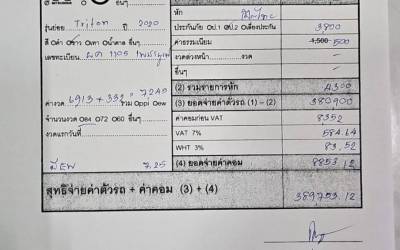 อื่นๆ
หัก
รุ่นย่อย Triton ปี 2020
ประกันภัย ป.1 ป.2 เตี่ยงประกัน 3,800
สี ดำ ขาว เทา น้ำตาล อื่นๆ
ค่าธรรมเนียม 1,500 500
เลขทะเบียน 1105
งวดล่วงหน้า งวด -
อื่นๆ -
(2) รวมรายการหัก 4300
ค่างวด 6913 + 332 = 7245 รวม ppi ew
(3) ยอดจ่ายค่าตัวรถ (1) - (2) 380900
จำนวนงวด 84 72 60 อื่นๆ
ค่าคอมก่อน VAT 8352
งวดแรกวันที่
VAT 7% 584.64
WHT 3% 83.52
7.25
(4) ยอดจ่ายค่าคอม 8853.12
สุทธิจ่ายค่าตัวรถ + ค่าคอม (3) + (4) 389753.12